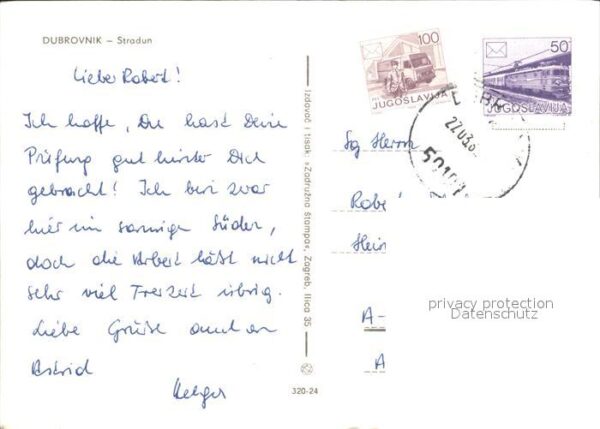 DUBROVNIK – Stradun
Lieber Robert!
Ich hoffe, Du hast Deine
Prüfung gut hinter Dich
gebracht! Ich bin zwar
hier im sonnigen Süden,
doch die Arbeit läßt nicht
sehr viel Freizeit übrig.
Liebe Grüße auch an
Astrid
Izdavač i tisak: »Zadružna štampa«, Zagreb, Ilica 35
320-24
100
JUGOSLAVIJA
50
JUGOSLAVIJA
Sg Herrn
Robe
Hein
A-
A
privacy protection
Datenschutz